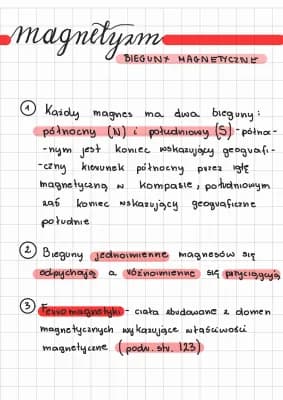 magnetyzm
BIEGUNY MAGNETYCZNE
1 Każdy magnes ma dwa bieguny:
północny (N) i południowy (S) - północ-
-nym jest koniec wskazujący geografi-
-czny kierunek północny przez igłę
magnetyczną w kompasie, południowym
zaś koniec wskazujący geograficzne
południe
2 Bieguny jednoimienne magnesów się
odpychają a różnoimienne się przyciągają
3 Ferromagnetyki - ciała zbudowane z domen
magnetycznych wykazujące właściwości
magnetyczne (podr. str. 123)